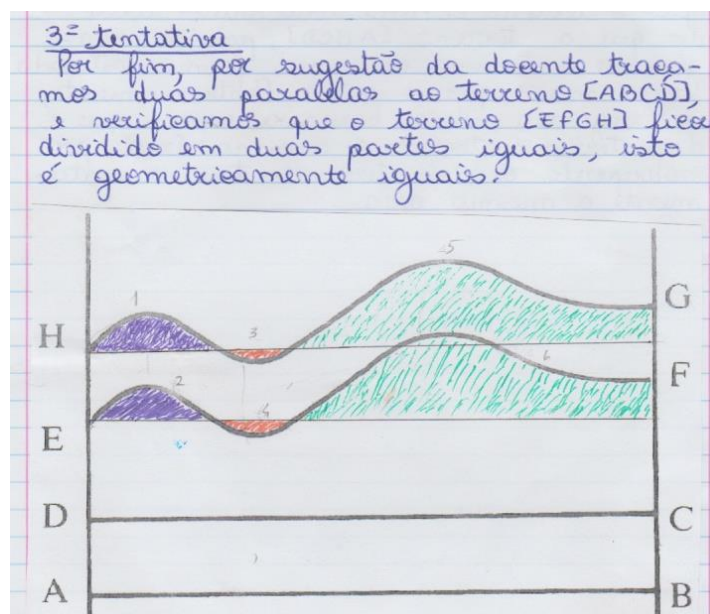 3ª tentativa
Por fim, por sugestão da docente traça-
mos duas paralelas ao terreno [ABCD],
e verificamos que o terreno [EFGH] ficou
dividido em duas partes iguais, isto
é geometricamente iguais.
5
1
G
H
3
F
2
6
4
E
D
C
A
B